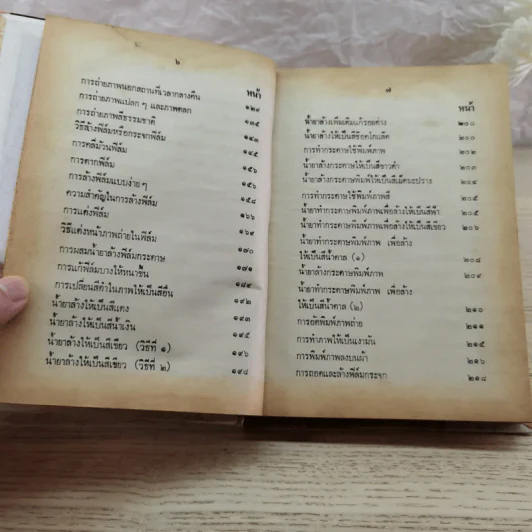 ๖
หน้า
การถ่ายภาพนอกสถานที่เวลากลางคืน ๑๒๘
การถ่ายภาพแปลก ๆ และภาพตลก ๑๓๕
การถ่ายภาพสีธรรมชาติ
วิธีล้างฟิล์มหรือกระจกฟิล์ม ๑๔๕
การคลี่ม้วนฟิล์ม
การตากฟิล์ม ๑๕๖
การล้างฟิล์มแบบง่าย ๆ ๑๕๖
ความสำคัญในการล้างฟิล์ม ๑๕๘
การแต่งฟิล์ม ๑๖๖
วิธีแต่งหน้าภาพถ่ายในฟิล์ม ๑๖๙
การผสมน้ำยาล้างฟิล์มกระดาษ ๑๗๐
การแก้ฟิล์มบางให้หนาขึ้น
การเปลี่ยนสีดำในภาพให้เป็นสีอื่น
น้ำยาล้างให้เป็นสีแดง ๑๙๒
น้ำยาล้างให้เป็นสีน้ำเงิน ๑๙๕
น้ำยาล้างให้เป็นสีเขียว (วิธีที่ ๑) ๑๙๖
น้ำยาล้างให้เป็นสีเขียว (วิธีที่ ๒) ๑๙๘
๗
หน้า
น้ำยาล้างเพิ่มเติมแก้รอยด่าง ๒๐๐
น้ำยาล้างให้เป็นสีช็อคโกแล็ต ๒๐๐
การทำกระดาษใช้พิมพ์ภาพ ๒๐๑
น้ำยาล้างกระดาษให้เป็นสีขาวดำ ๒๐๒
น้ำยาล้างกระดาษพิมพ์ให้เป็นสีเม็ดมะปราง ๒๐๔
การทำกระดาษใช้พิมพ์ภาพสี ๒๐๕
น้ำยาทำกระดาษพิมพ์ภาพเพื่อล้างให้เป็นสีฟ้า ๒๐๕
น้ำยาทำกระดาษพิมพ์ภาพเพื่อล้างให้เป็นสีเขียว ๒๐๖
น้ำยาทำกระดาษพิมพ์ภาพ เพื่อล้าง
ให้เป็นสีน้ำตาล (๑) ๒๐๘
น้ำยาล้างกระดาษพิมพ์ภาพ ๒๐๙
น้ำยาทำกระดาษพิมพ์ภาพ เพื่อล้าง
ให้เป็นสีน้ำตาล (๒) ๒๑๐
การอัดพิมพ์ภาพถ่าย ๒๑๑
การทำภาพให้เป็นเงามัน ๒๑๕
การพิมพ์ภาพลงบนผ้า ๒๑๖
การถอดและล้างฟิล์มกระจก ๒๑๘